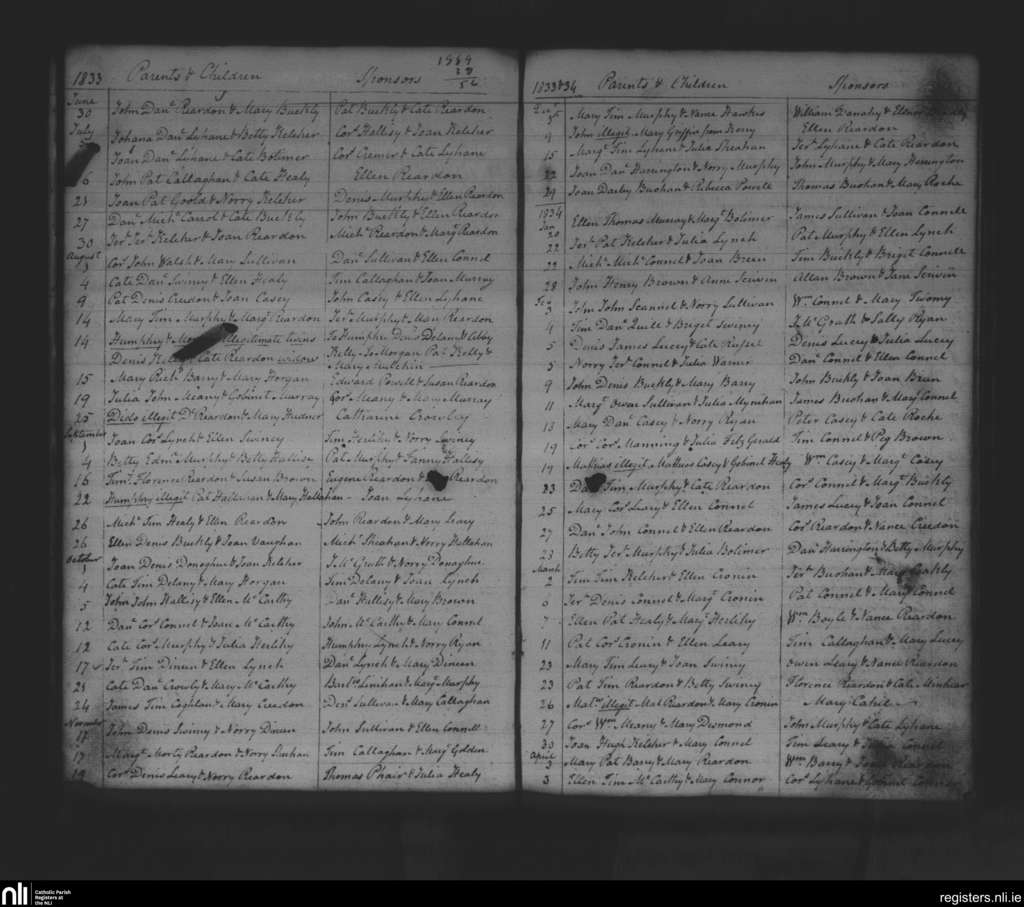 1833 Parents & Children Sponsors 1889
18
52
June
30 John Danl Reardon & Mary Buckly Pat Buckly & Cate Reardon
July
Johana Danl Lyhane & Betty Keleher Cors Hallisy & Joan Keleher
Joan Danl Lyhane & Cate Bolimer Cors Cremin & Cate Lyhane
6 John Pat Callaghan & Cate Healy Ellen Reardon
21 Joan Pat Goold & Norry Keleher Denis Murphy & Ellen Reardon
27 Danl Michl Carrol & Cate Buckly John Buckly & Ellen Reardon
30 Jerh Jerh Keleher & Joan Reardon Michl Reardon & Margt Reardon
August
3 Cors John Walsh & Mary Sullivan Danl Sullivan & Ellen Connel
4 Cate Danl Swiny & Ellen Healy Tim Callaghan & Joan Murray
9 Pat Denis Creedon & Joan Casey John Casey & Ellen Lyhane
14 Mary Tim Murphy & Margt Reardon Jerh Murphy & Mary Reardon
14 Humphry & illegitimate twins To Humphr Denis Delany & Abby
Denis Cate Reardon widow Kelly To Morgan Pat Kelly &
Mary Hutchin
15 Mary Richd Barry & Mary Horgan Edward Powell & Susan Reardon
19 Julia John Meany & Gobinet Murray Cors Meany & Mary Murray
25 Dido illegit Dl Reardon & Mary Hudner Catharine Crowley
September
1 Joan Cors Lynch & Ellen Swiney Tim Herlihy & Norry Swiney
4 Betty Edmd Murphy & Betty Hallise Pat Murphy & Fanny Hallisy
16 Timy Florence Reardon & Susan Brown Eugene Reardon & Reardon
22 Humphry illegit Pat Hallahan & Mary Hallahan - Joan Lyhane
26 Michl Tim Healy & Ellen Reardon John Reardon & Mary Leary
26 Ellen Denis Buckly & Joan Vaughan Michl Sheahan & Norry Hallahan
October
Joan Denis Donoghue & Joan Keleher J. McGrath & Norry Donaghue
4 Cate Tim Delany & Mary Horgan Tim Delany & Joan Lynch
5 John John Hallisy & Ellen McCarthy Danl Hallisy & Mary Brown
12 Danl Cors Connel & Joan McCarthy John McCarthy & Mary Connel
12 Cate Cors Murphy & Julia Herlihy Humphry Lynch & Norry Ryan
17 Jerh Tim Dineen & Ellen Lynch Danl Lynch & Mary Dineen
21 Cate Danl Crowly & Mary McCarthy Barthw Linihan & Margt Murphy
24 James Tim Coghlan & Mary Creedon Denis Sullivan & Mary Callaghan
November
17 John Denis Swiny & Norry Dineen John Sullivan & Ellen Connell
17 Margt Morty Reardon & Norry Sheehan Tim Callaghan & Margt Golden
19 Cors Denis Leary & Norry Reardon Thomas Phair & Julia Healy
1833 & 34 Parents & Children Sponsors
Decr
Mary Tim Murphy & Nance Hawkes William Danahy & Elenor
9 John illegit Mary Griffin from Kerry Ellen Reardon
15 Margt Tim Lyhane & Julia Sheahan Jerh Lyhane & Cate Reardon
22 Joan Danl Harrington & Norry Murphy John Murphy & Mary Herrington
29 Joan Darby Buohan & Rebecca Powell Thomas Buohan & Mary Roche
1834
Jan
20 Ellen Thomas Murray & Margt Bolimer James Sullivan & Joan Connell
22 Jerh Pat Keleher & Julia Lynch Pat Murphy & Ellen Lynch
22 Michl Michl Connel & Joan Breen Tim Buckly & Briget Connell
28 John Henry Brown & Anne Scriven Allan Brown & Jane Scriven
Feb
3 John John Scannel & Norry Sullivan Wm Connel & Mary Twomy
4 Tim Danl Quill & Briget Swiney J. McGrath & Sally Ryan
5 Denis James Lucey & Cate Russel Denis Lucey & Julia Lucey
5 Norry Jerh Connel & Julia Warner Danl Connel & Ellen Connel
9 John Denis Buckly & Mary Barry John Buckly & Joan Breen
11 Margt Owen Sullivan & Julia Mynihan James Buohan & Mary Connel
13 Mary Danl Casey & Norry Ryan Peter Casey & Cate Roche
19 Cors Cors Manning & Julia Fitz Gerald Tim Connel & Peg Brown
19 Mathias illegit Mathias Casey & Gobinet Healy Wm Casey & Margt Casey
23 Tim Murphy & Cate Reardon Cors Connel & Margt Buckly
25 Mary Cors Leary & Ellen Connel James Lucey & Joan Connel
27 Danl John Connel & Ellen Reardon Cors Reardon & Nance Creedon
23 Betty Jerh Murphy & Julia Bolimer Danl Harrington & Betty Murphy
March
2 Tim Tim Keleher & Ellen Cronin Jerh Buohan & Mary
Jerh Denis Connel & Margt Cronin Pat Connel & Mary Connel
7 Ellen Pat Healy & Margt Herlihy Wm Boyle & Nance Reardon
11 Pat Cors Cronin & Ellen Leary Tim Callaghan & Mary Lucey
23 Mary Tim Leary & Joan Swiny Owen Leary & Nance Reardon
23 Pat Tim Reardon & Betty Swiney Florence Reardon & Cate Minhear
26 Matw illegit Mat Reardon & Mary Cronin Mary Cahil
27 Cors Wm Meany & Mary Desmond John Murphy & Cate Lyhane
30 Joan Hugh Keleher & Mary Connel Tim Leary & Julia Connel
April
3 Mary Pat Barry & Mary Reardon Wm Barry & Reardon
3 Ellen Tim McCarthy & Mary Connor Cors Lyhane & Gobinet Connor
nli Catholic Parish
Registers at
the NLI
registers.nli.ie